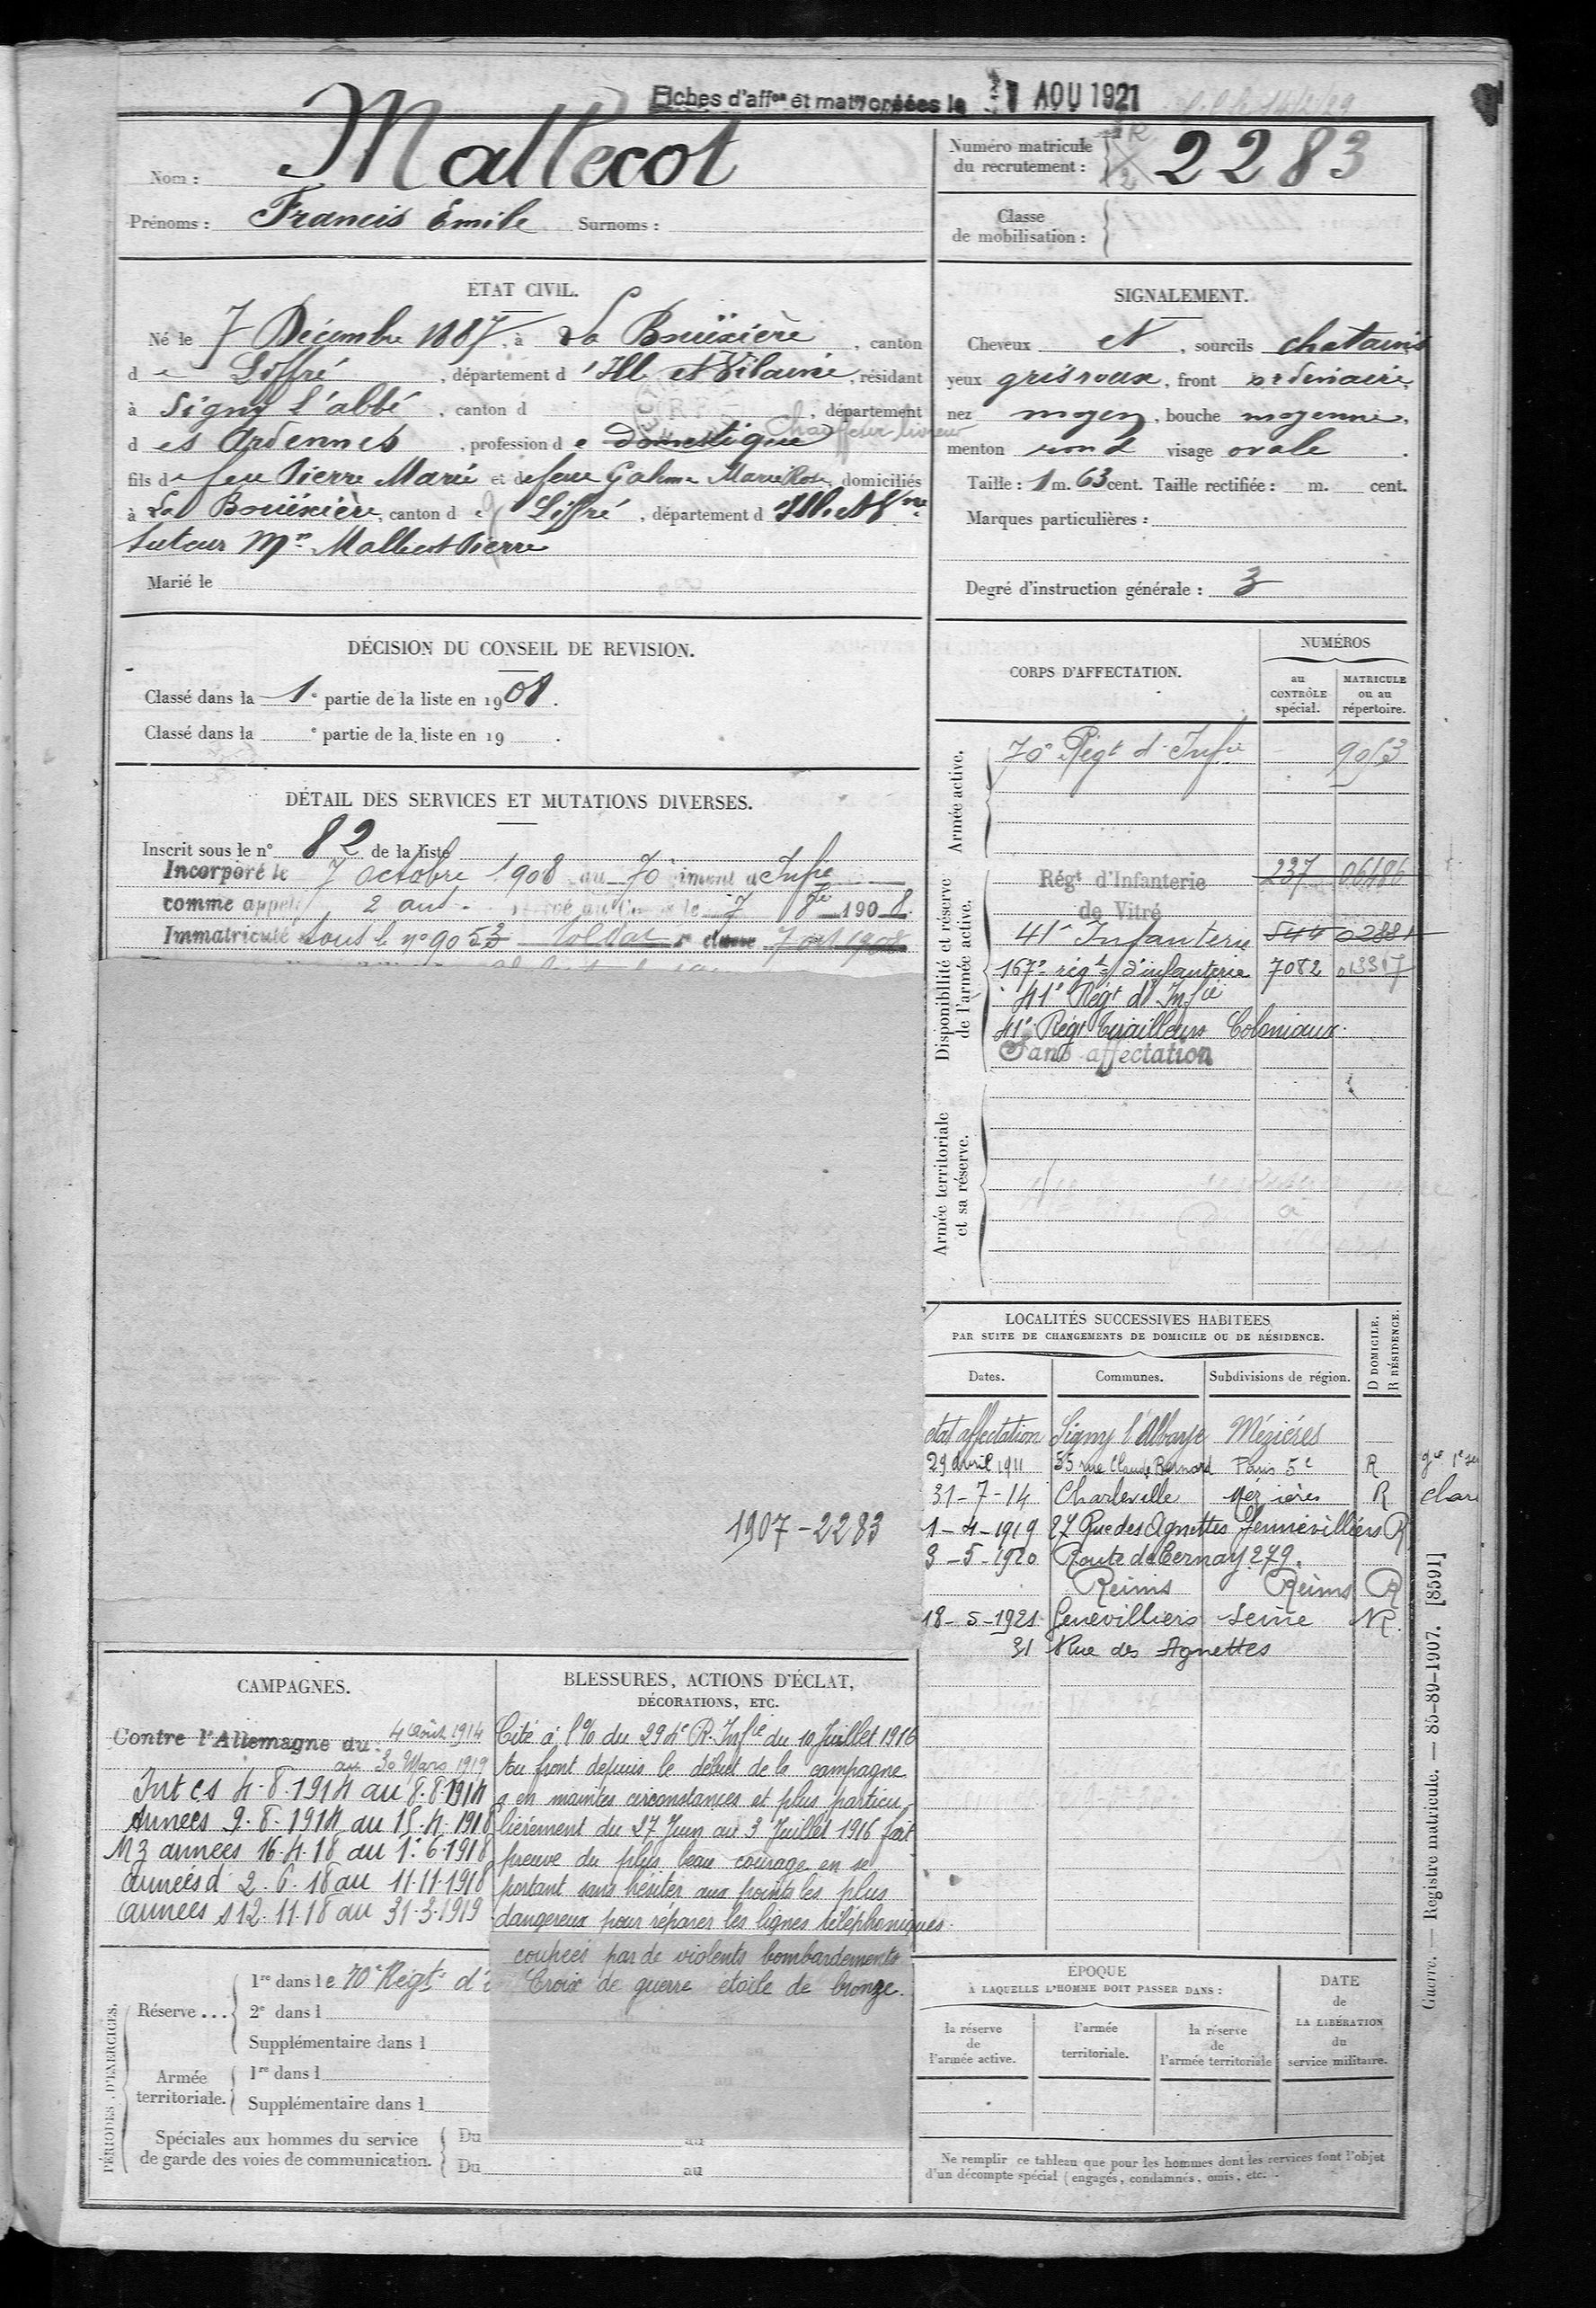 Fiches d'affon et matr créées le 7 AOU 1921
Nom : Mallecot
Prénoms : Francis Emile Surnoms :
Numéro matricule du recrutement : 2283
Classe de mobilisation :
ÉTAT CIVIL.
Né le 7 Décembre 1887, à La Bouëxière, canton
de Liffré, département d'Ille et Vilaine, résidant
à Signy l'abbé, canton d , département
des Ardennes, profession de domestique Chauffeur livreur
fils de feu Pierre Marie et de feue Marie Rose, domiciliés
à La Bouëxière, canton de Liffré, département d'Ille et Vne
tuteur Mr Pierre
Marié le
SIGNALEMENT.
Cheveux et, sourcils chatains
yeux gris roux, front ordinaire,
nez moyen, bouche moyenne,
menton rond visage ovale.
Taille : 1 m. 63 cent. Taille rectifiée : m. cent.
Marques particulières :
Degré d'instruction générale : 3
DÉCISION DU CONSEIL DE REVISION.
Classé dans la 1e partie de la liste en 1908.
Classé dans la e partie de la liste en 19 .
DÉTAIL DES SERVICES ET MUTATIONS DIVERSES.
Inscrit sous le n° 82 de la liste
Incorporé le 7 octobre 1908 au 70 iment d'Infie
comme appelé 2 ans. le 7 8bre 1908.
Immatriculé sous le n° 9053 soldat de classe 7 oct 1908
1907-2283
CORPS D'AFFECTATION.
NUMÉROS
au CONTRÔLE spécial.
MATRICULE ou au répertoire.
Armée active.
70e Régt d'Infie 9053
Disponibilité et réserve de l'armée active.
Régt d'Infanterie de Vitré 237 06686
41e Infanterie 544 02881
167e régt d'infanterie 7082 013317
41e Régt d'Infie
41e Régt Tirailleurs Coloniaux.
Sans affectation
Armée territoriale et sa réserve.
LOCALITÉS SUCCESSIVES HABITÉES
PAR SUITE DE CHANGEMENTS DE DOMICILE OU DE RÉSIDENCE.
Dates. Communes. Subdivisions de région. D DOMICILE. R RÉSIDENCE.
etat affectation Signy l'Abbaye Mézières
29 avril 1911 55 rue Claude Bernard Paris 5e R
31-7-14 Charleville Mézières R
1-4-1919 27 Rue des Agnettes Gennevilliers R
3-5-1920 Route de Cernay 279.
Reims Reims R
18-5-1921 Genevilliers Seine R.
31 Rue des Agnettes
CAMPAGNES.
Contre l'Allemagne du 4 août 1914
au 30 Mars 1919
Int cs 4.8.1914 au 8.8.1914
Armées 9.8.1914 au 15.4.1918
N3 armées 16.4.18 au 1.6.1918
armées d 2.6.18 au 11.11.1918
armées s 12.11.18 au 31.3.1919
BLESSURES, ACTIONS D'ÉCLAT,
DÉCORATIONS, ETC.
Cité à l'O/ du 294e R. Infie du 10 Juillet 1916
Au front depuis le début de la campagne
a en maintes circonstances et plus particu-
lièrement du 27 Juin au 3 Juillet 1916 fait
preuve du plus beau courage en se
portant sans hésiter aux points les plus
dangereux pour réparer les lignes téléphoniques
coupées par de violents bombardements.
Croix de guerre étoile de bronze.
PÉRIODES D'EXERCICES.
Réserve... 1re dans le 70e Régt d'
2e dans l
Supplémentaire dans l
Armée territoriale. 1re dans l
Supplémentaire dans l
Spéciales aux hommes du service
de garde des voies de communication.
Du au
Du au
ÉPOQUE
À LAQUELLE L'HOMME DOIT PASSER DANS :
la réserve de l'armée active.
l'armée territoriale.
la réserve de l'armée territoriale
DATE de LA LIBÉRATION du service militaire.
Ne remplir ce tableau que pour les hommes dont les services font l'objet
d'un décompte spécial (engagés, condamnés, omis, etc.).
Guerre. — Registre matricule. — 85-89-1907. [8591]